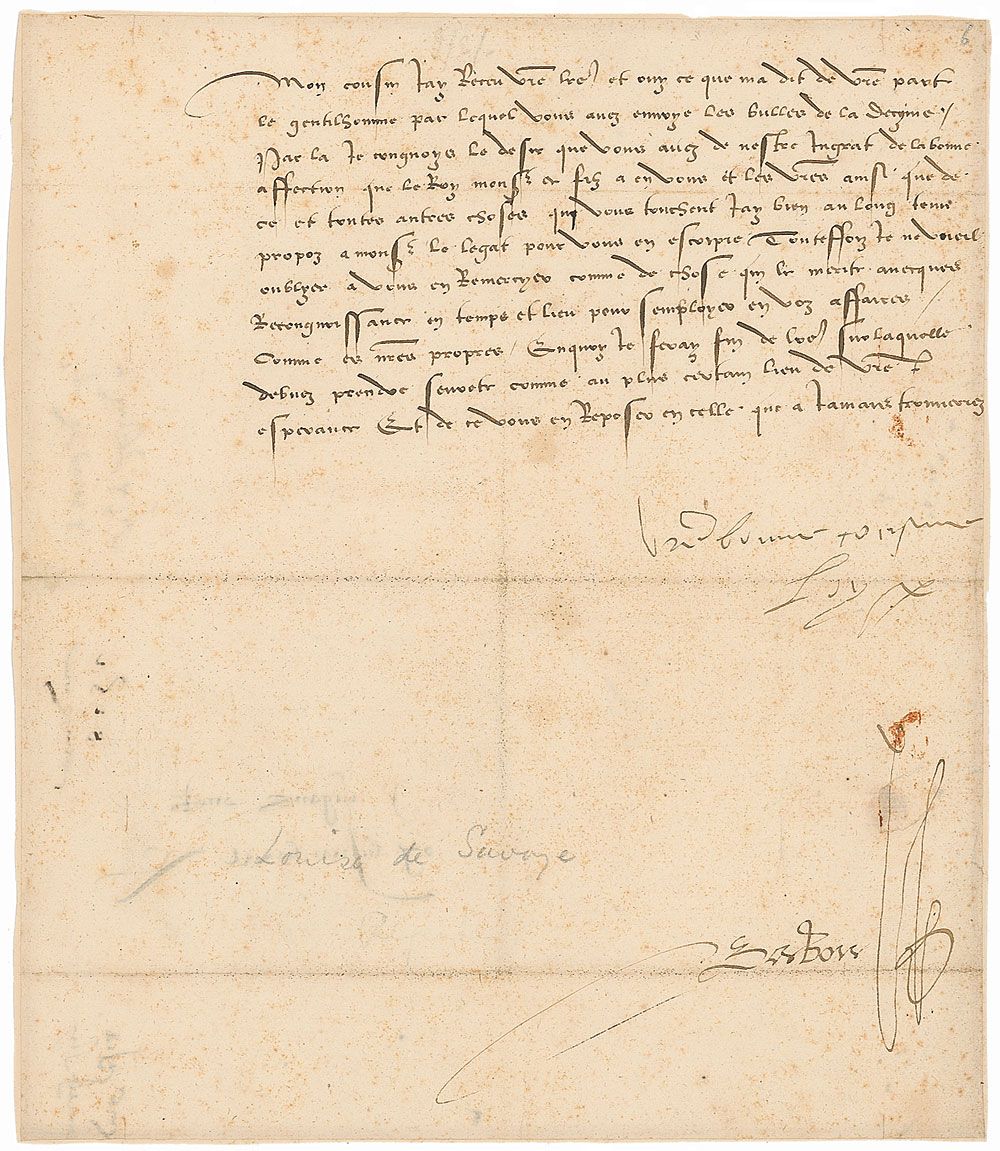 6
Mon cousin Jay Receu vre lre et ouy ce que ma dit de vre part
le gentilhomme par lequel vous avez envoye les bulles de la decyme /
Par la Je congnoys le desir que vous avez de nestre Ingrat de la bonne
affection que le Roy monsr et filz a en vous et les vres ainsi que de
ce et toutes autres choses qui vous touchent Jay bien au long tenu
propoz a monsr le legat pour vous en escripre Touteffoiz Je ne vueil
oublyer a vous en Remercyer comme de chose qui le merite avecques
Recongnoissance en temps et lieu pour semployer en voz affaires
Comme es nres propres / Enquoy Je feray fin de lre sur laquelle
debvez prendre seurete comme au plus certain lieu de vre
esperance Et de ce vous en Reposer en celle que a Jamais trouverez
Vre bonne cousine
Loyse
Louise de Savoye